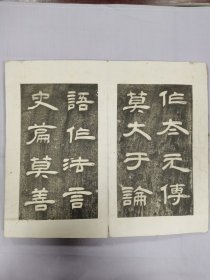 作太玄傳
莫大于論
語作法言
史篇莫善